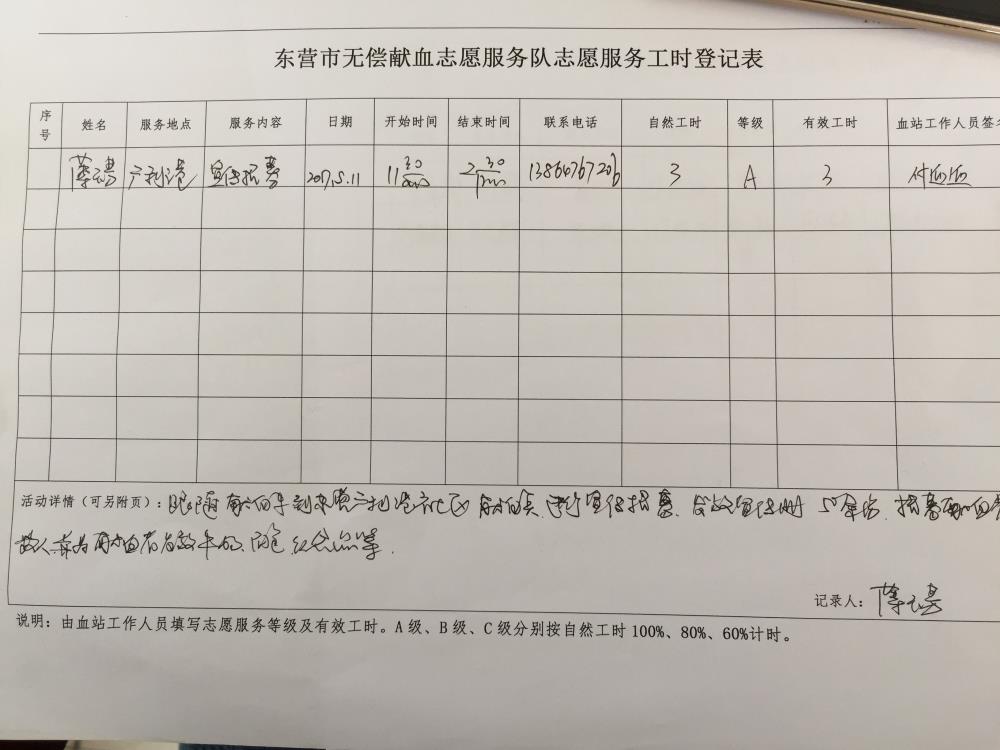 东营市无偿献血志愿服务队志愿服务工时登记表
序号 姓名 服务地点 服务内容 日期 开始时间 结束时间 联系电话 自然工时 等级 有效工时 血站工作人员签名
广利港 宣传招募 2017.5.11 11:30am 2:30pm 13864767206 3 A 3
活动详情（可另附页）：跟随献血车到东营广利港社区献血点 进行宣传招募 发放宣传册 50余份 招募献血
记录人：
说明：由血站工作人员填写志愿服务等级及有效工时。A级、B级、C级分别按自然工时100%、80%、60%计时。